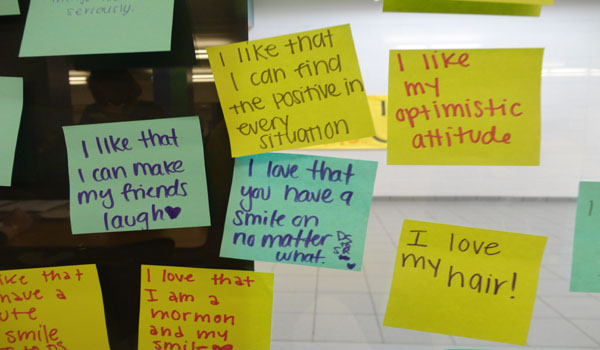 seriously.
I like that
I can find
the positive in
every
situation
I like
my
optimistic
attitude
I like that
I can make
my friends
laugh
I love that
you have a
smile on
no matter
what.
I love
my hair!
like that
have a
smile
I love that
I am a
mormon
and my
smile